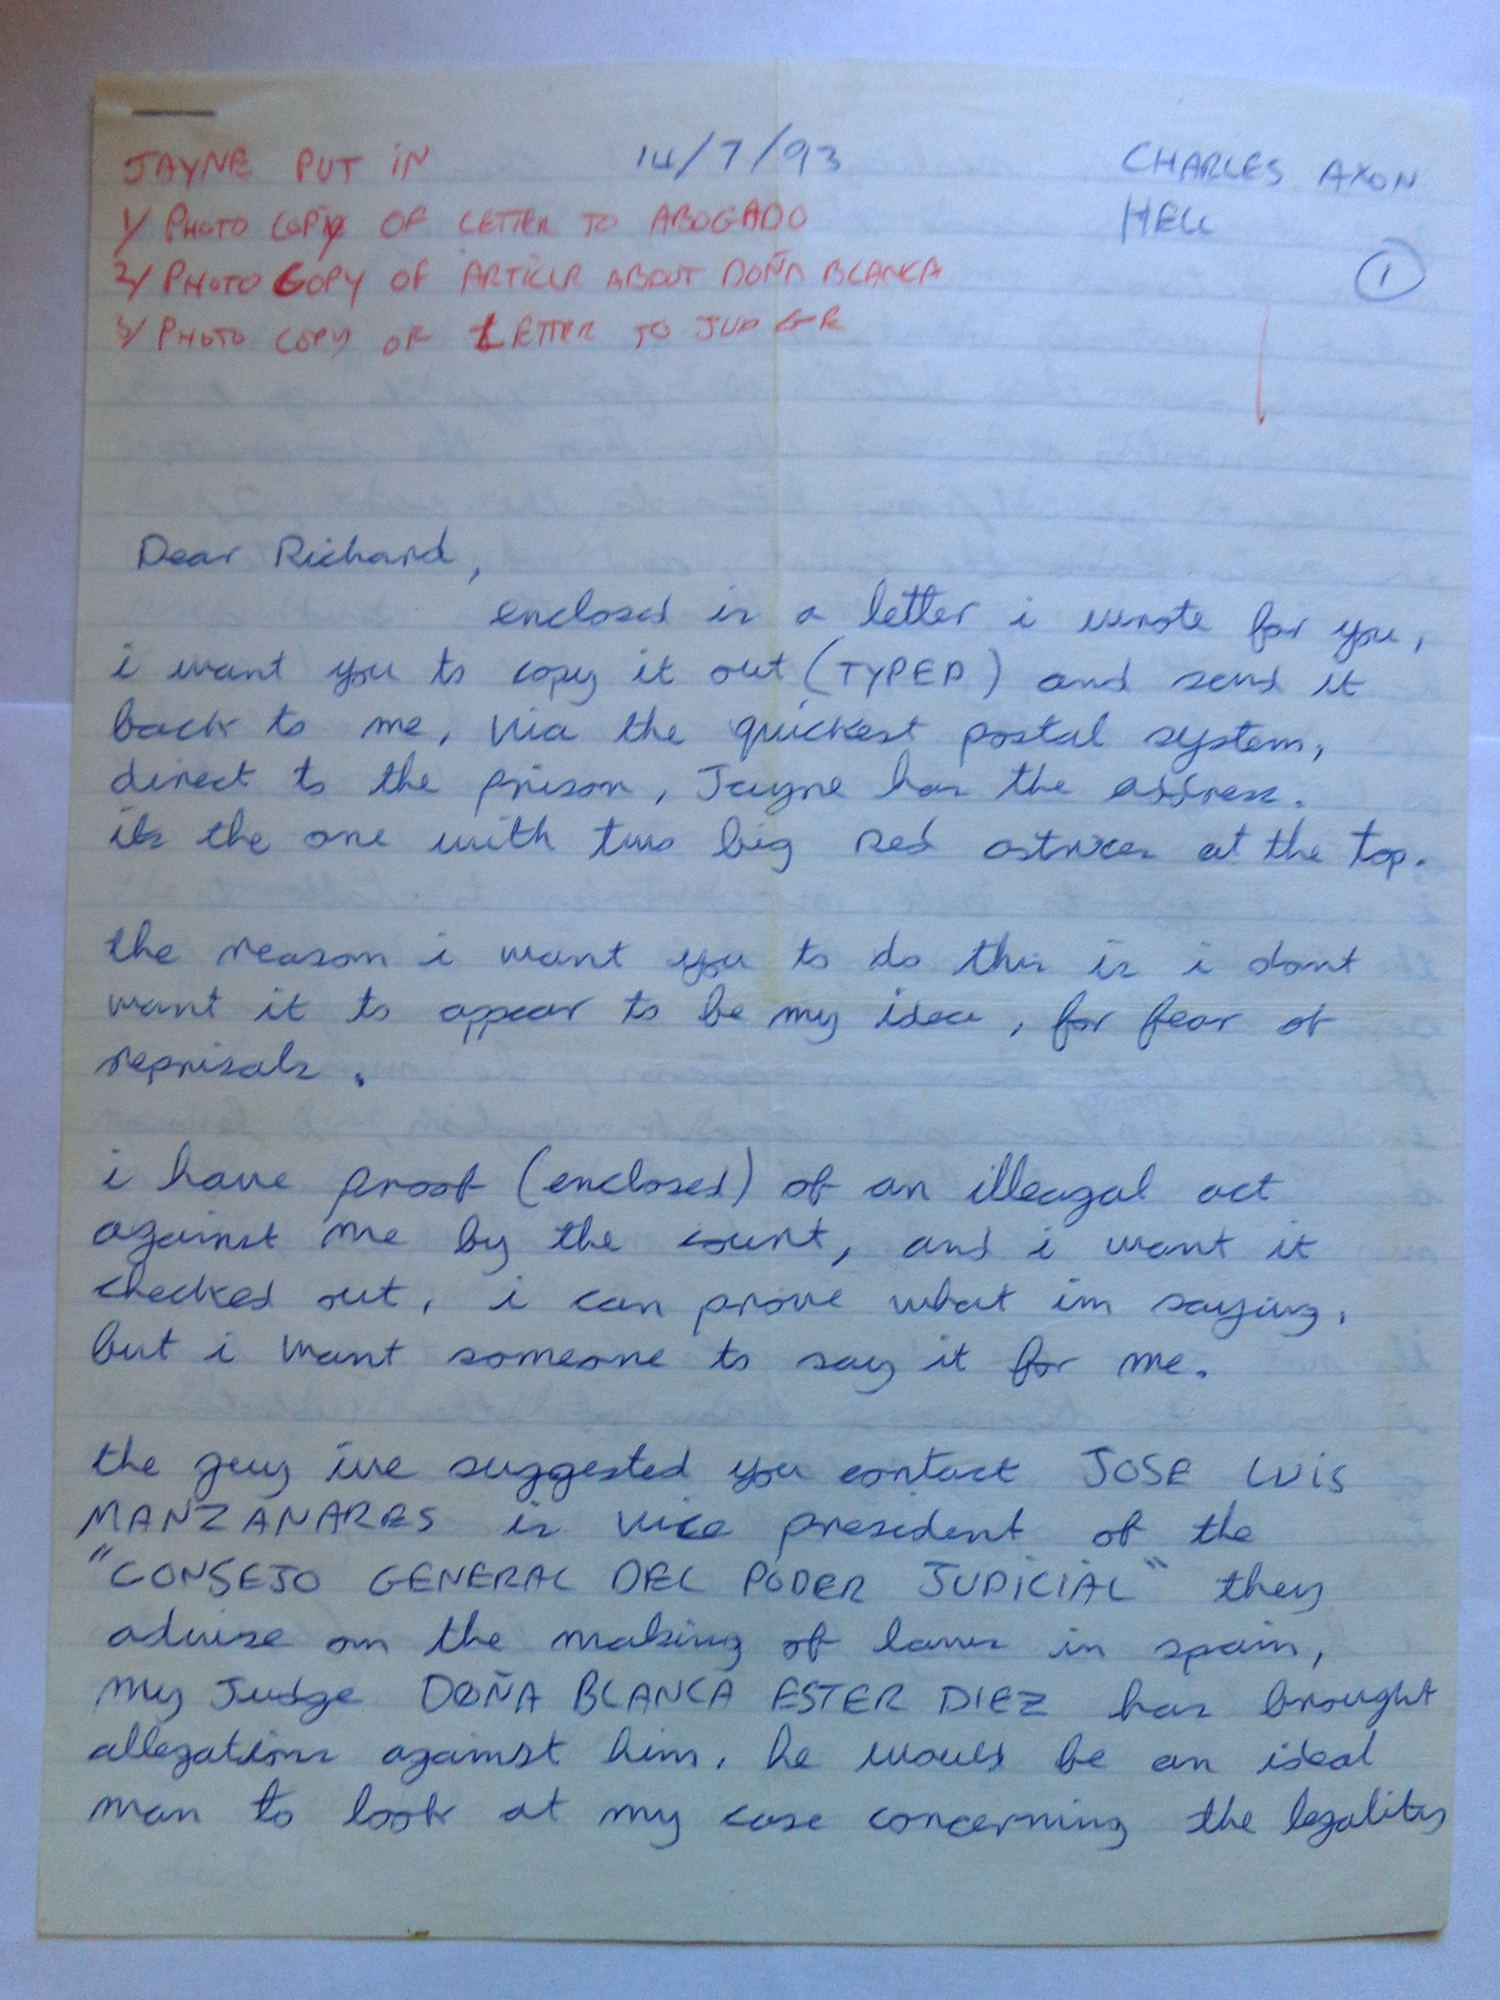 JAYNE PUT IN
14/7/93
CHARLES AXON
HELL
1
1/ PHOTO COPY OF LETTER TO ABOGADO
2/ PHOTO COPY OF ARTICLE ABOUT DOÑA BLANCA
3/ PHOTO COPY OF LETTER TO JUDGE
Dear Richard,
enclosed is a letter i wrote for you,
i want you to copy it out (TYPED) and send it
back to me, via the quickest postal system,
direct to the prison, Jayne has the address.
its the one with two big red astrices at the top.
the reason i want you to do this is i dont
want it to appear to be my idea, for fear of
reprisals.
i have proof (enclosed) of an illeagal act
against me by the court, and i want it
checked out, i can prove what im saying,
but i want someone to say it for me.
the guy ive suggested you contact JOSE LUIS
MANZANARES is vice president of the
"CONSEJO GENERAL DEL PODER JUDICIAL" they
advise on the making of laws in spain,
my Judge DOÑA BLANCA ESTER DIEZ has brought
allegations against him, he would be an ideal
man to look at my case concerning the legality